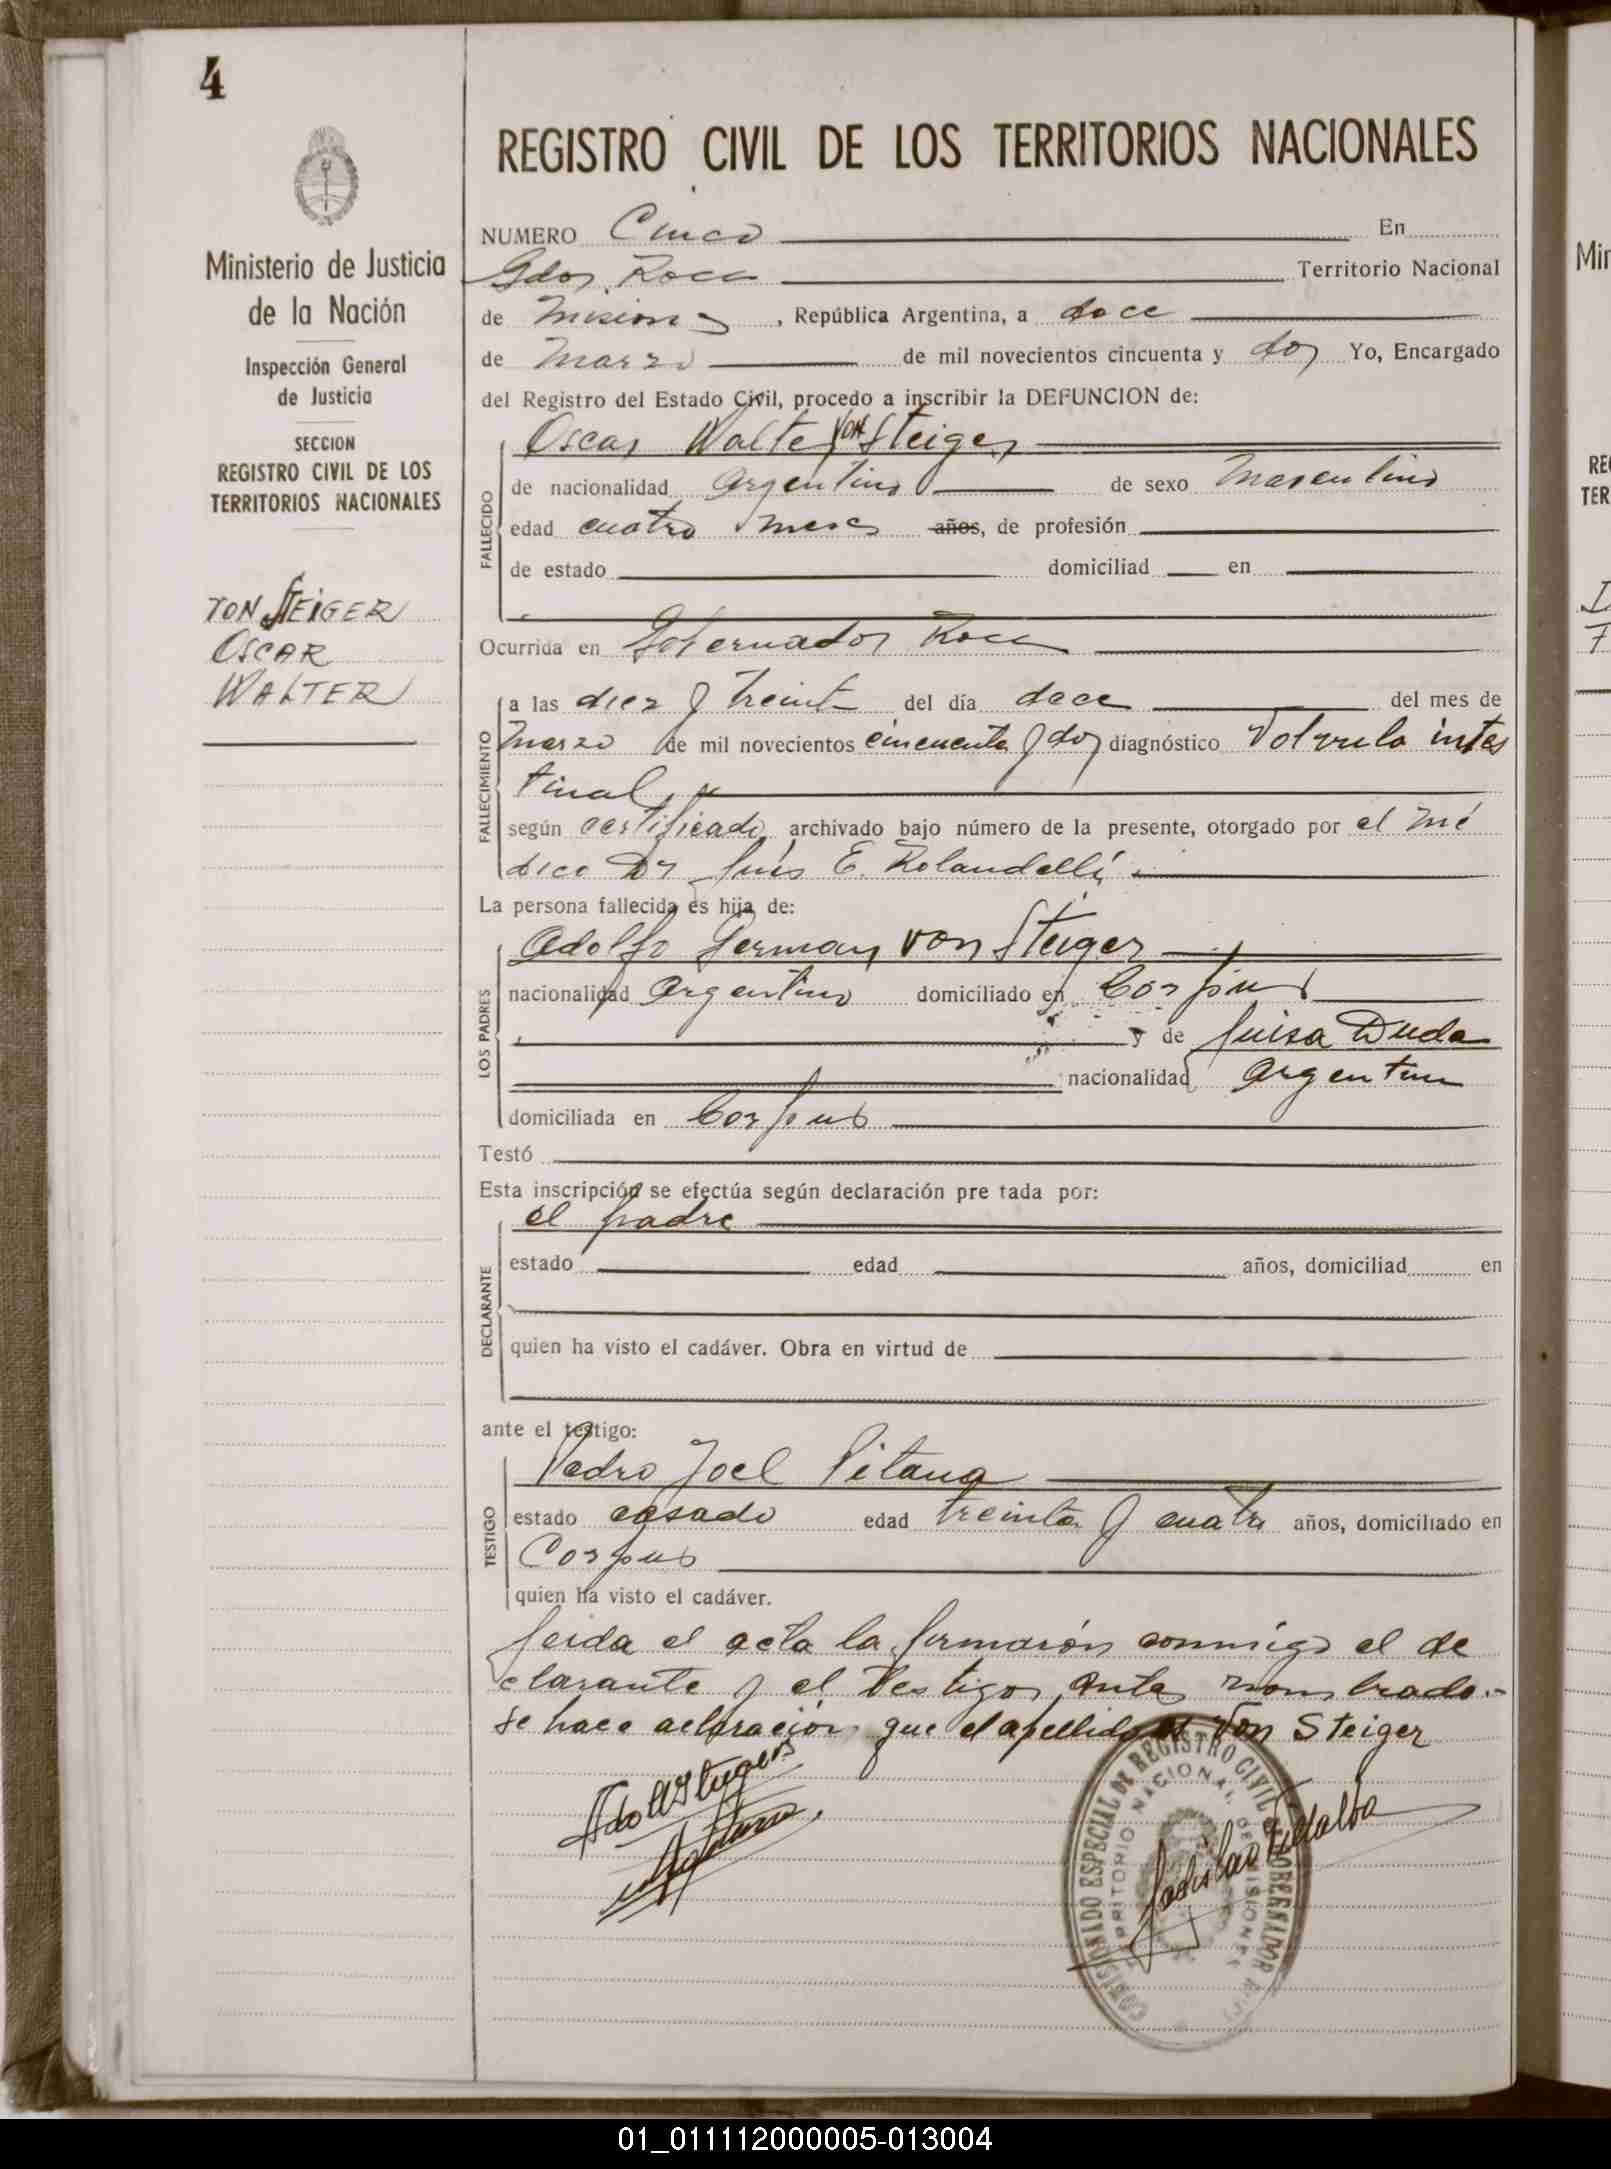 4
REGISTRO CIVIL DE LOS TERRITORIOS NACIONALES
Ministerio de Justicia
de la Nación
Inspección General
de Justicia
SECCION
REGISTRO CIVIL DE LOS
TERRITORIOS NACIONALES
VON STEIGER
OSCAR
WALTER
NUMERO Cinco En
Gdor. Roca Territorio Nacional
de Misiones, República Argentina, a doce
de Marzo de mil novecientos cincuenta y dos Yo, Encargado
del Registro del Estado Civil, procedo a inscribir la DEFUNCION de:
Oscar Walter von Steiger
FALLECIDO
de nacionalidad Argentino de sexo Masculino
edad cuatro meses años, de profesión
de estado domiciliad en
Ocurrida en Gobernador Roca
FALLECIMIENTO
a las diez y treinta del día doce del mes de
Marzo de mil novecientos cincuenta y dos diagnóstico Volvulo intes
tinal
según certificado archivado bajo número de la presente, otorgado por el mé
dico Dr Luis E. Rolandelli
La persona fallecida es hija de:
LOS PADRES
Adolfo German von Steiger
nacionalidad Argentino domiciliado en Corpus
y de Luisa Duda
nacionalidad Argentina
domiciliada en Corpus
Testó
Esta inscripción se efectúa según declaración pre tada por:
DECLARANTE
el padre
estado edad años, domiciliad en
quien ha visto el cadáver. Obra en virtud de
ante el testigo:
TESTIGO
Pedro Joel Pitana
estado casado edad treinta y cuatro años, domiciliado en
Corpus
quien ha visto el cadáver.
Leida el acta la firmarón conmigo el de
clarante y el testigo antes nombrado.-
Se hace aclaración que el apellido es Von Steiger
COMISIONADO ESPECIAL DE REGISTRO CIVIL GOBERNADOR ROCA
TERRITORIO NACIONAL DE MISIONES
Ladislao Villalba
Min
RE
TER
01_011112000005-013004